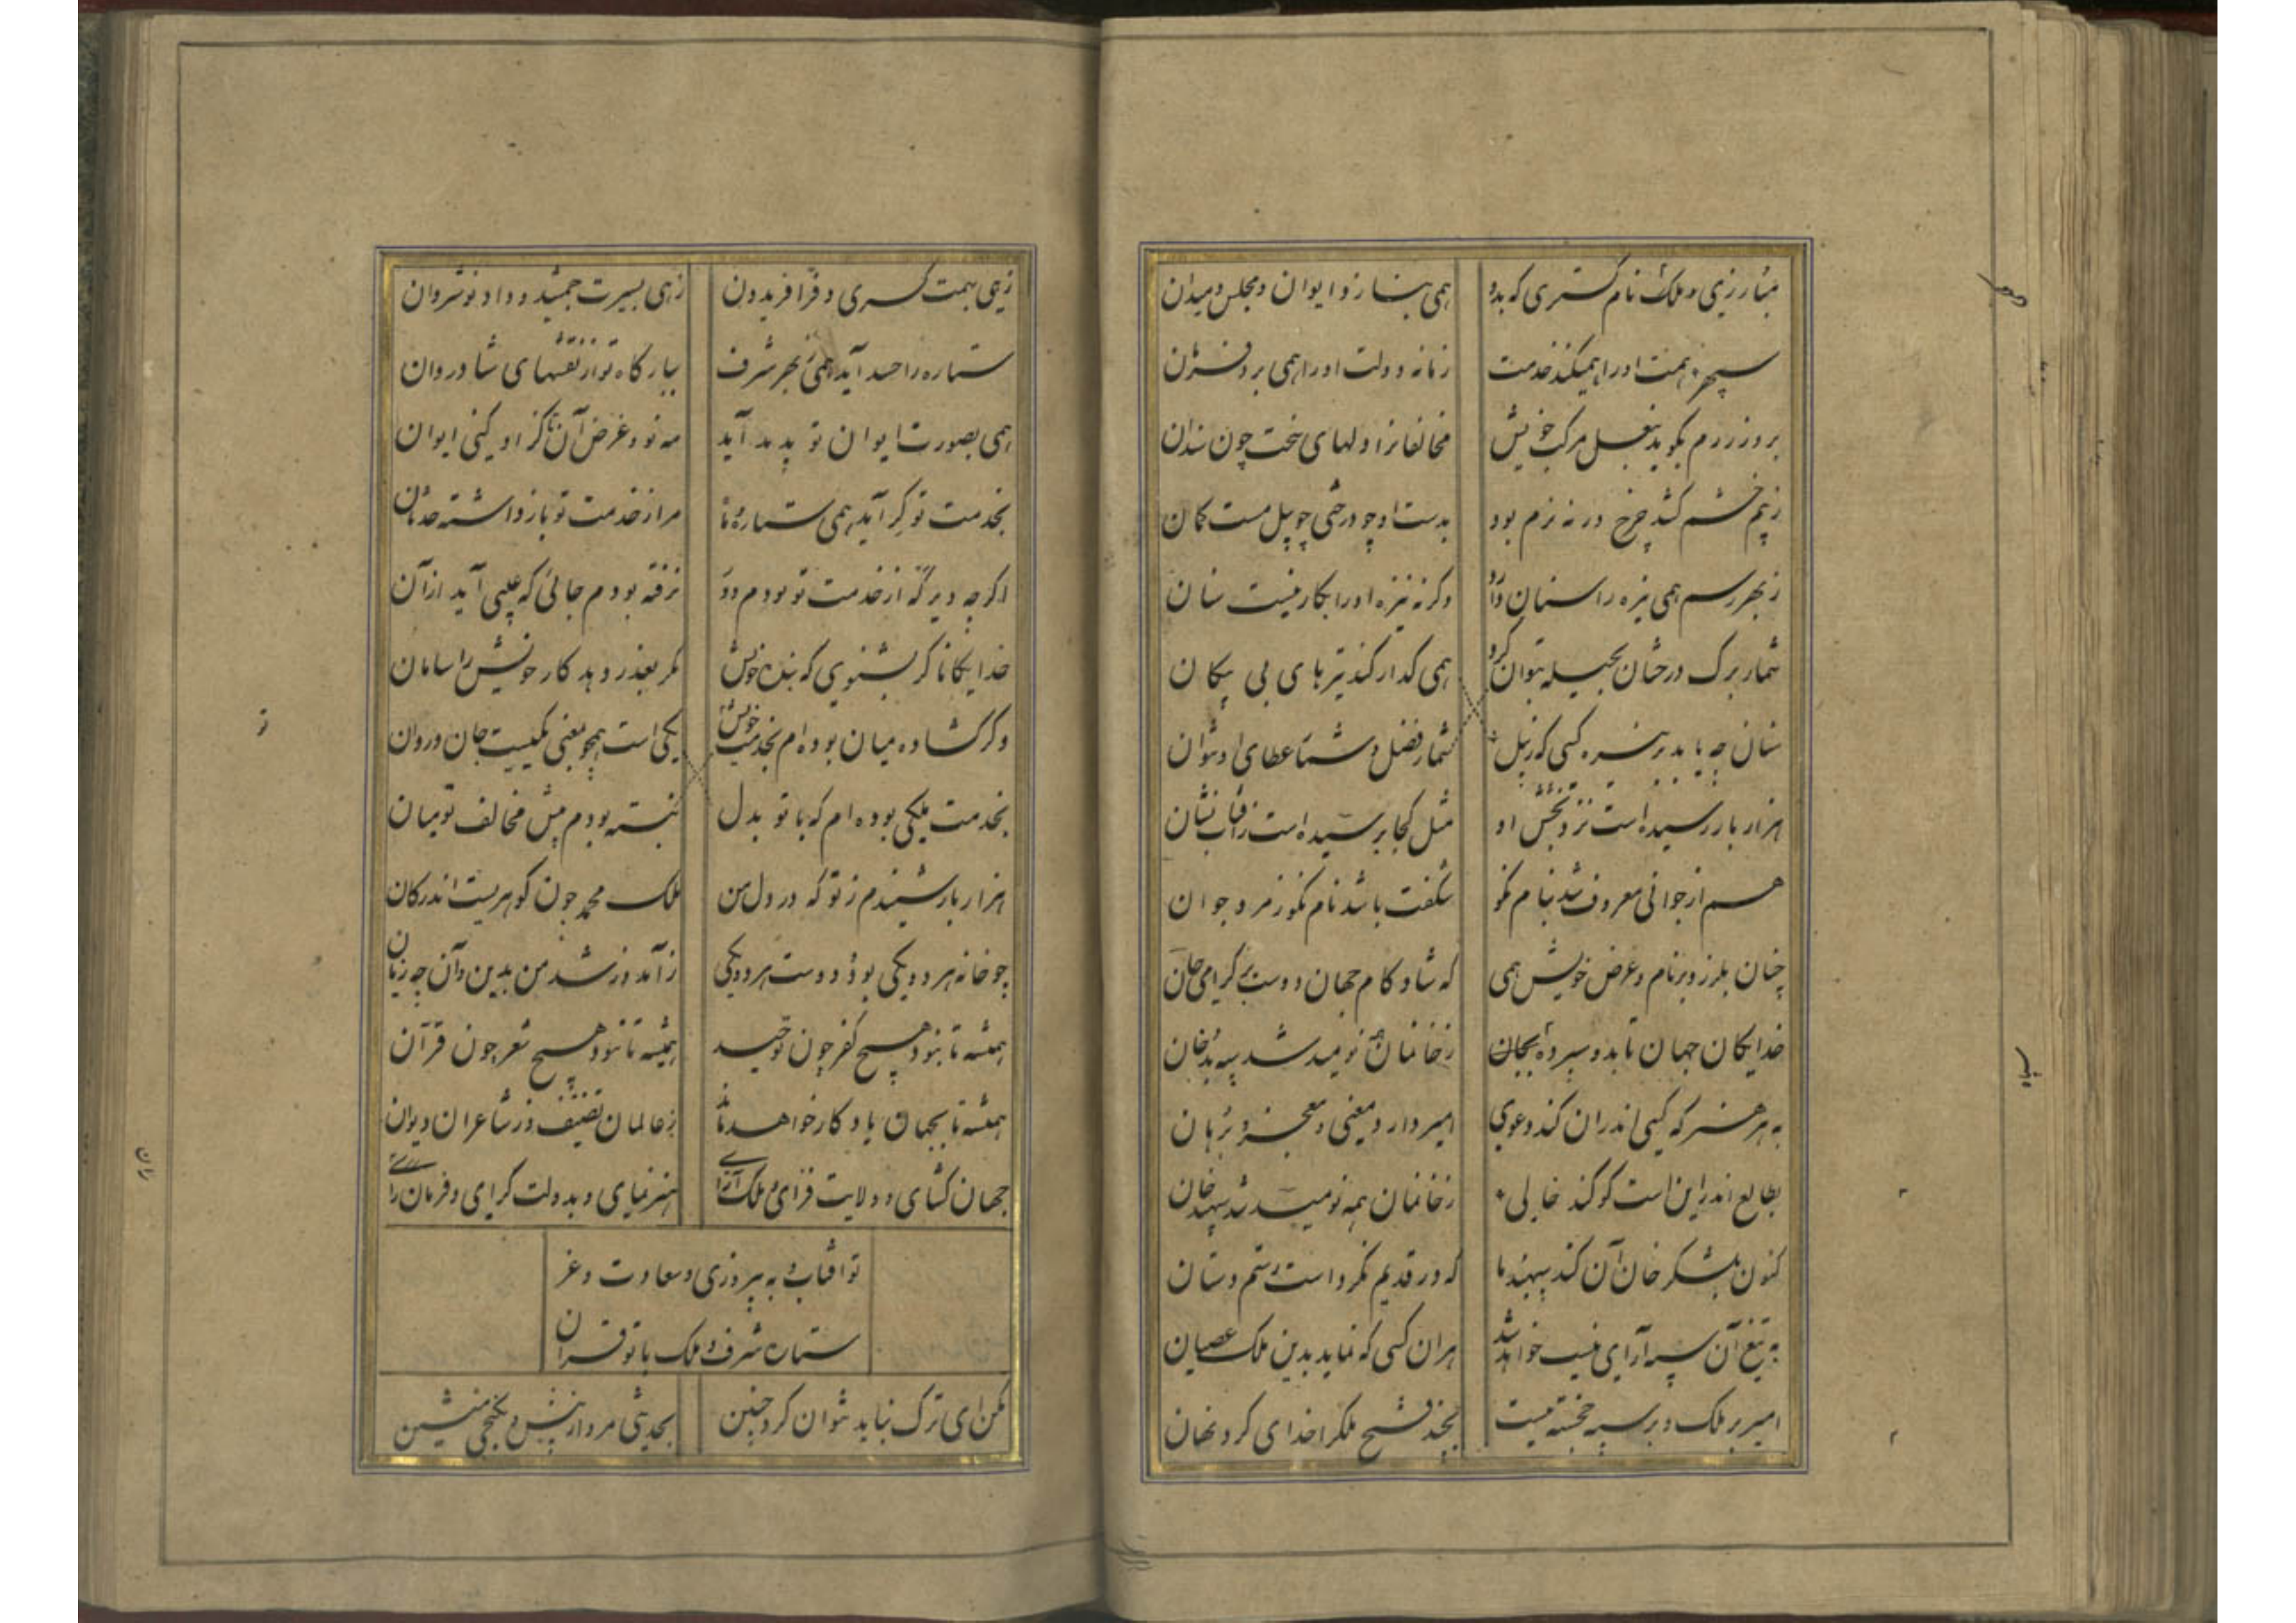 مبارزی و ملک نام گستری که بدو
همی بنازد ایوان و مجلس و میدان
سپهر همت او را همیکند خدمت
زمانه دولت او را همی برد فرمان
بروز رزم بگوید بنعل مرکب خویش
مخالفانرا دلهای سخت چون سندان
زبیم خشم کشد چرخ ورنه نرم بود
بدست او چو درختی چو پیل مست کمان
ز بهر رسم همی نیزه را سنان
وگرنه نیزه او را بکار نیست سنان
شمار برگ درختان بحیله بتوان کرد
همی گذار کند تیرهای بی پیکان
سنان چه باید بر نیزه کسی کز پیل
شمار فضل و شمار عطای او نتوان
هزار بار رسیده است نزد بخشش او
مثل کجا برسیده است زآفتاب نشان
هم از جوانی معروف شد بنام نکو
شگفت باشد نام نکو ز مرد جوان
چنان بلرزد بر نام و عرض خویش همی
که شادکام جهان دوست بر گرامی جان
خدایگان جهان تا بدو سپرده
ز خانمان نومید شد سپه بد خان
به هر هنر که کسی اندران کند دعوی
امیر دارد معنی و معجز و برهان
بطالع اندر این است کو کند خالی
ز خانمان همه نومید شد سپهبد خان
کنون بلشکر خان آن کند سپهبد ما
که در قدیم نکرده است رستم دستان
به تیغ آن سپه آرای نیست خواهد شد
هران کسی که نماید بدین ملک عصیان
امیر بر ملک و بر سپه خجسته پیست
فتح ملک را خدای کرد نهان
زهی بهمت کسری و فر افریدون
زهی بسیرت جمشید و داد نوشروان
ستاره را حسد آید همی ز بهر شرف
ببارگاه تو از نقشهای شادروان
همی بصورت ایوان تو پدید آید
مه نو و غرض آن تا کز او کنی ایوان
بخدمت تو گر آید همی ستاره
مرا ز خدمت تو باز داشته حدثان
اگرچه دیر گه از خدمت تو بودم دور
نرفته بودم جائی که عیبی آید ازآن
خدایگانا گر بشنوی که بنده خویش
مگر بعذر دهد کار خویش را سامان
وگر گشاده میان بوده ام بخدمت خویش
یکی است همچو بمعنی یکیست جان و روان
بخدمت ملکی بوده ام که با تو بدل
نبسته بودم پیش مخالف تو میان
هزار بار شنیدم ز تو که در دل من
ملک محمد چون گوهریست اندر کان
چو خانه هر دو یکی بود و دوست هر دو یکی
ز آمد و ز شد من بدین و آن چه زیان
همیشه تا نبود هیچ کفر چون توحید
همیشه تا نبود هیچ شعر چون قرآن
همیشه تا بجهان یادگار خواهد ماند
ز عالمان تصنیف و ز شاعران دیوان
جهان گشای و ولایت فزای و ملک آرای
هنر نمای و بدولت گرای و فرمان ران
تو آفتاب به پیروزی و سعادت و عز
ستاره شرف و ملک با تو کرده قران
مکن ای ترک نباید نتوان کرد چنین
بحدیثی مرو از پیش و بکنجی منشین